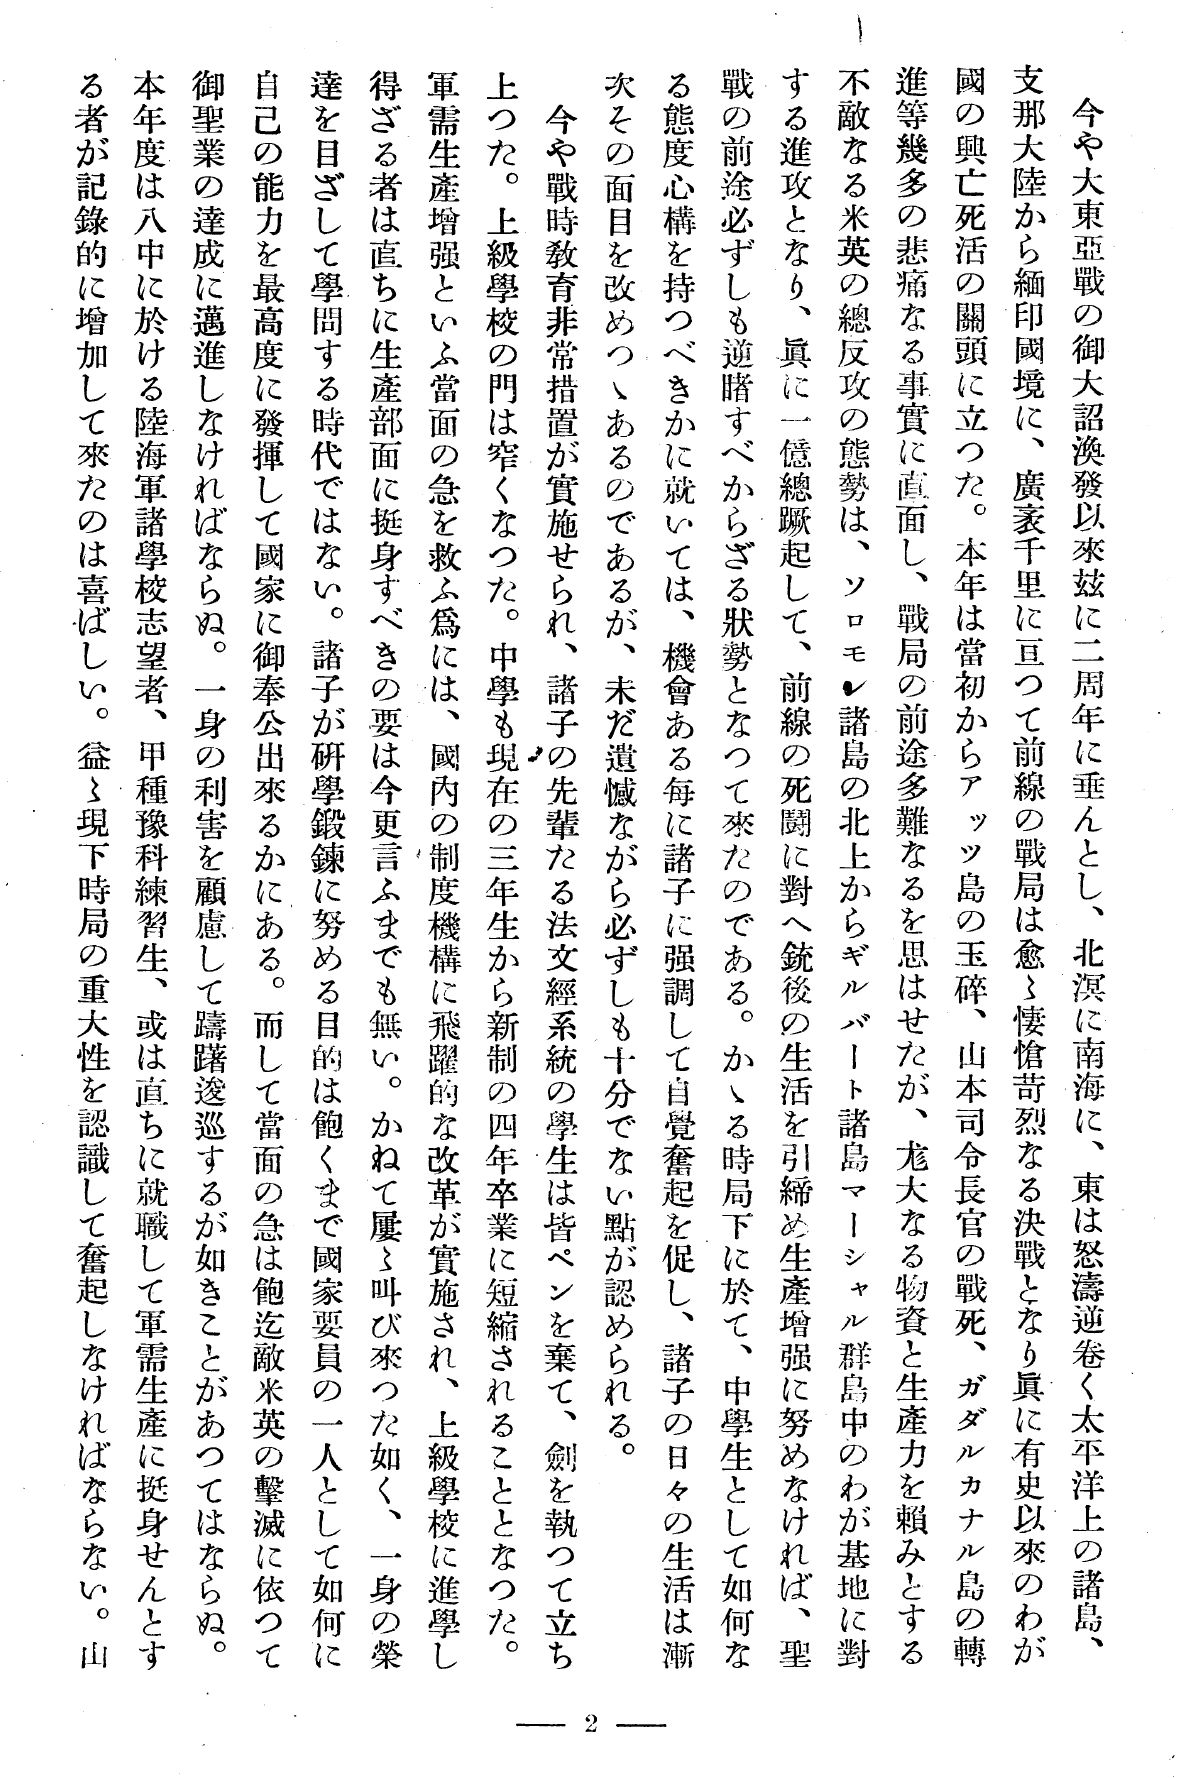 今や大東亞戰の御大詔渙發以來玆に二周年に垂んとし、北溟に南海に、東は怒濤逆卷く太平洋上の諸島、
支那大陸から緬印國境に、廣袤千里に亘つて前線の戰局は愈〻悽愴苛烈なる決戰となり眞に有史以來のわが
國の興亡死活の關頭に立つた。本年は當初からアッツ島の玉碎、山本司令長官の戰死、ガダルカナル島の轉
進等幾多の悲痛なる事實に直面し、戰局の前途多難なるを思はせたが、尨大なる物資と生產力を賴みとする
不敵なる米英の總反攻の態勢は、ソロモン諸島の北上からギルバート諸島マーシャル群島中のわが基地に對
する進攻となり、眞に一億總蹶起して、前線の死鬪に對へ銃後の生活を引締め生產增强に努めなければ、聖
戰の前途必ずしも逆睹すべからざる狀勢となつて來たのである。かゝる時局下に於て、中學生として如何な
る態度心構を持つべきかに就いては、機會ある每に諸子に强調して自覺奮起を促し、諸子の日々の生活は漸
次その面目を改めつゝあるのであるが、未だ遺憾ながら必ずしも十分でない點が認められる。
今や戰時教育非常措置が實施せられ、諸子の先輩たる法文經系統の學生は皆ペンを棄て、劍を執つて立ち
上つた。上級學校の門は窄くなつた。中學も現在の三年生から新制の四年卒業に短縮されることとなつた。
軍需生產增强といふ當面の急を救ふ爲には、國內の制度機構に飛躍的な改革が實施され、上級學校に進學し
得ざる者は直ちに生產部面に挺身すべきの要は今更言ふまでも無い。かねて屢〻叫び來つた如く、一身の榮
達を目ざして學問する時代ではない。諸子が硏學鍛鍊に努める目的は飽くまで國家要員の一人として如何に
自己の能力を最高度に發揮して國家に御奉公出來るかにある。而して當面の急は飽迄敵米英の擊滅に依つて
御聖業の達成に邁進しなければならぬ。一身の利害を顧慮して躊躇逡巡するが如きことがあつてはならぬ。
本年度は八中に於ける陸海軍諸學校志望者、甲種豫科練習生、或は直ちに就職して軍需生產に挺身せんとす
る者が記錄的に增加して來たのは喜ばしい。益〻現下時局の重大性を認識して奮起しなければならない。山
— 2 —